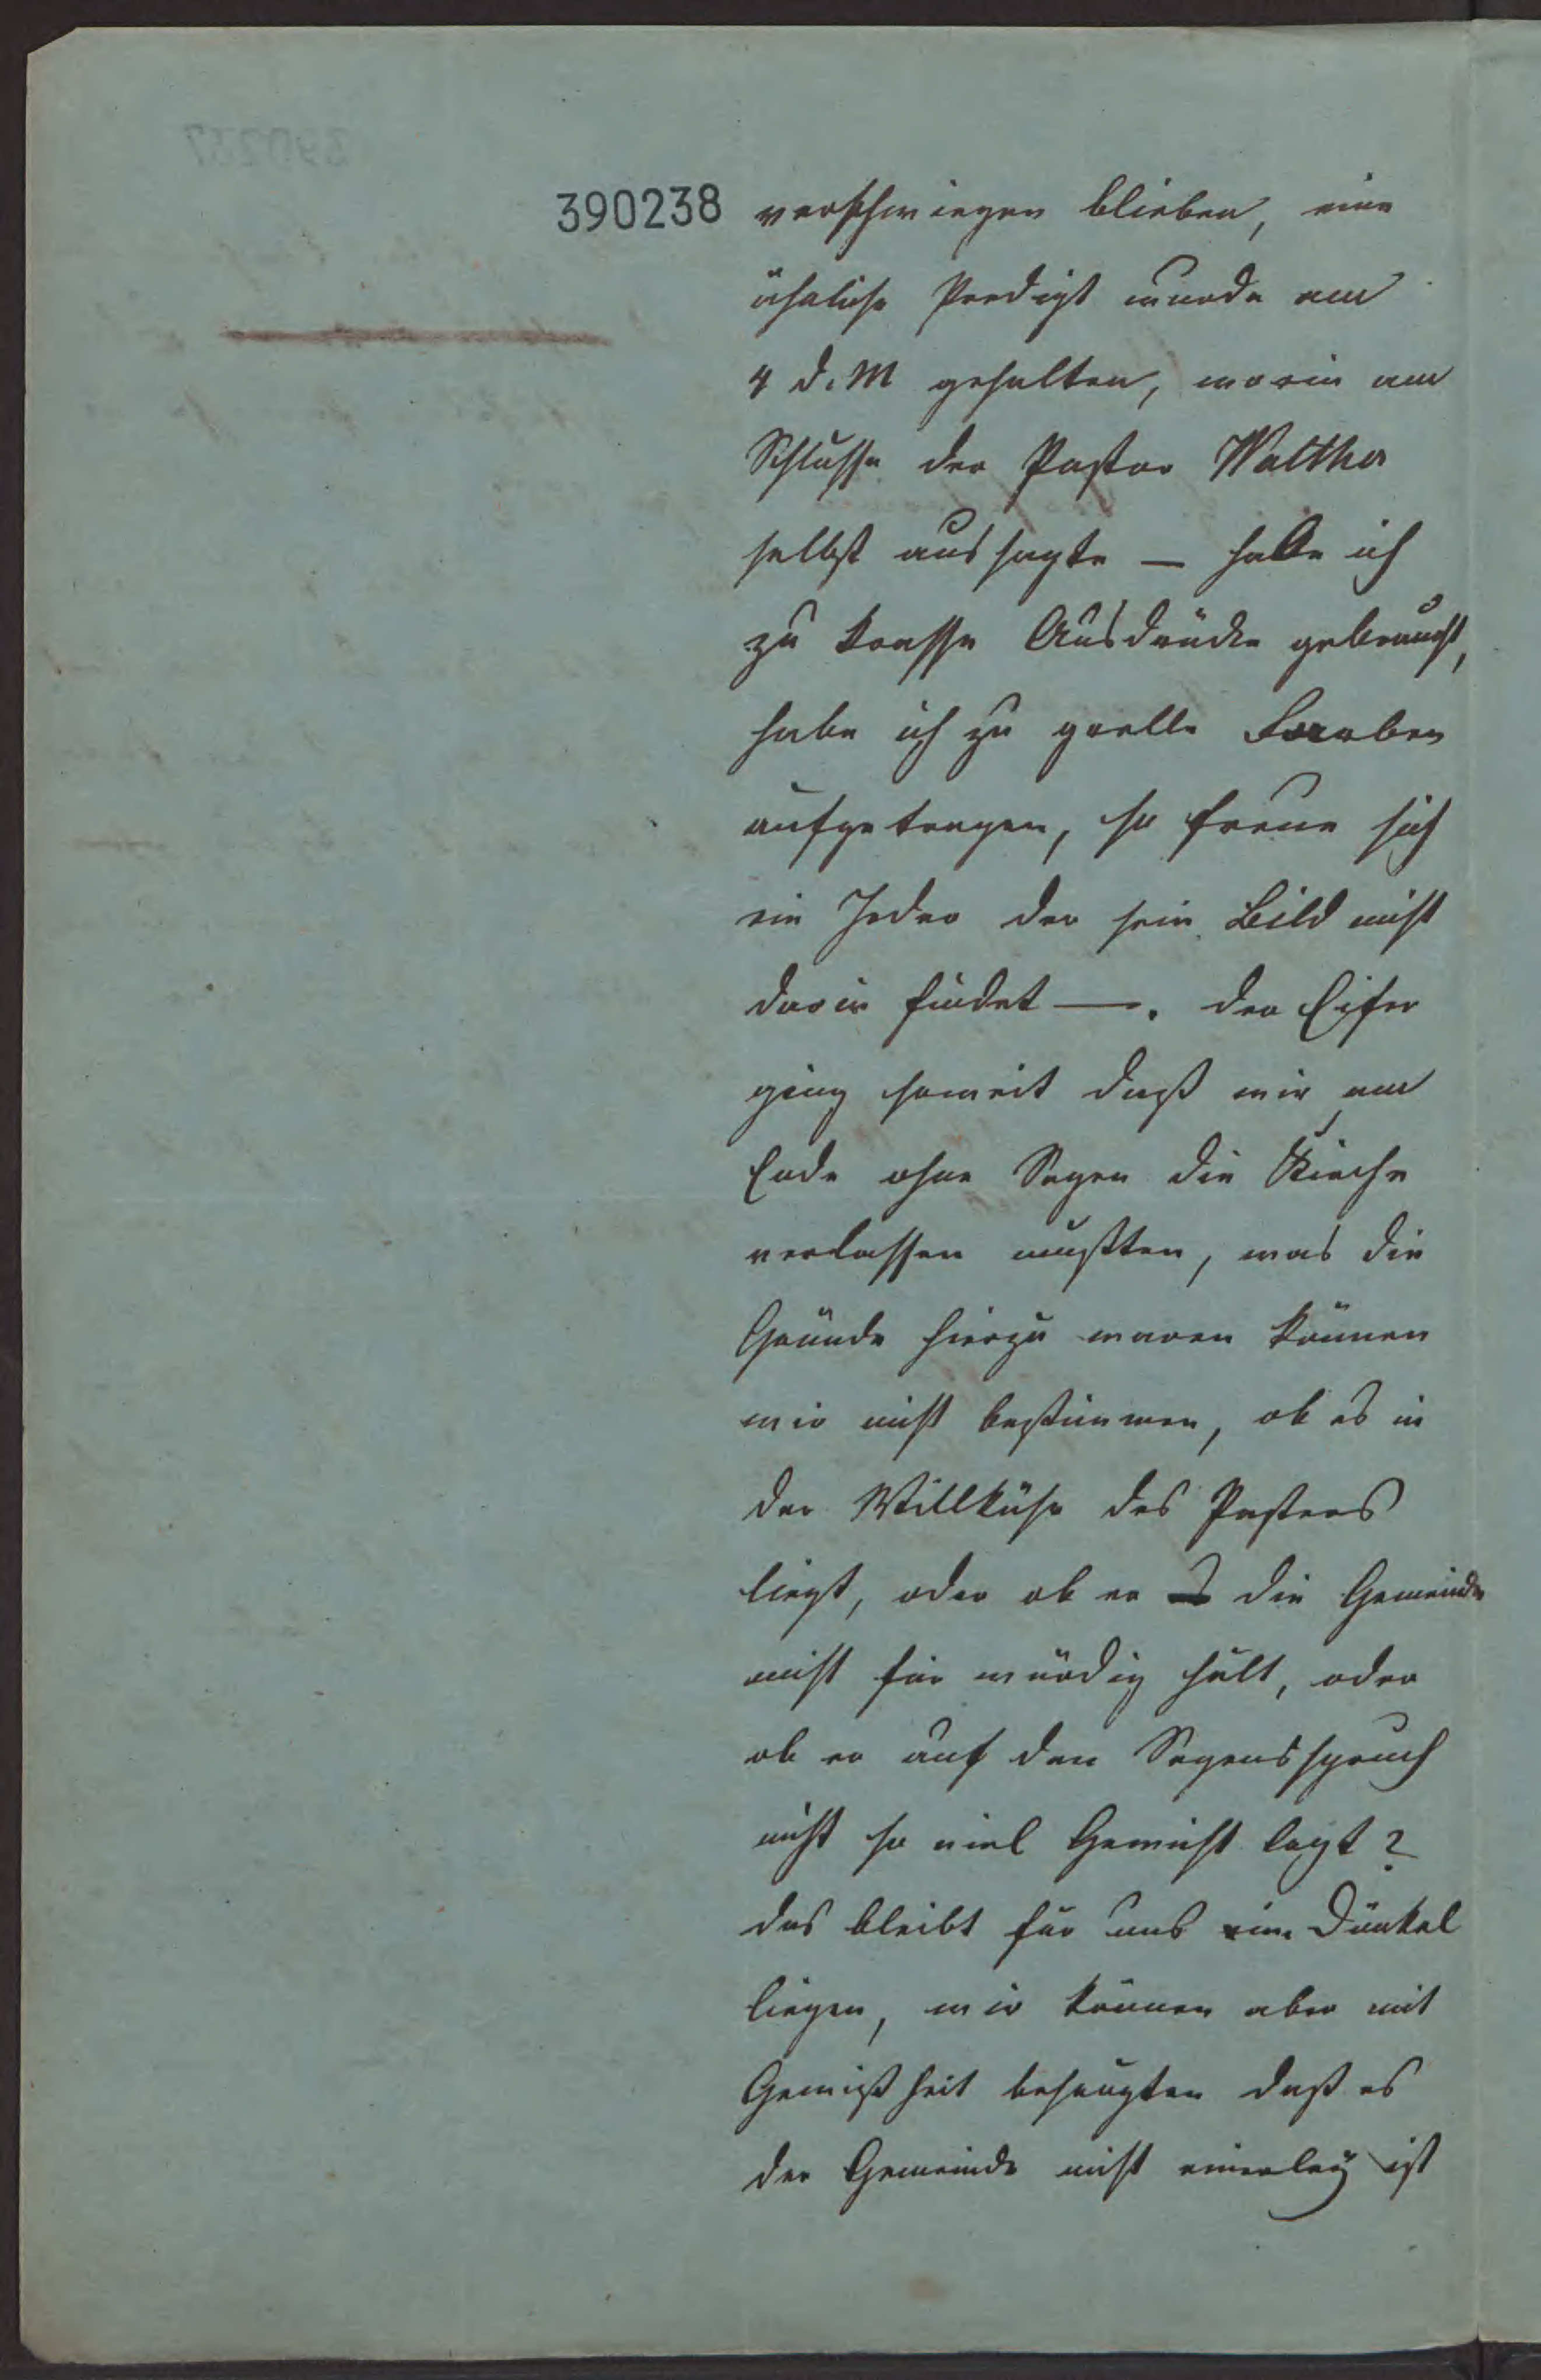 390238
verschwiegen blieben, eine
ähnliche Predigt wurde am
4 d. M gehalten, worin am
Schlusse der Pastor Walther
selbst aussagte — habe ich
zu krasse Ausdrücke gebraucht,
habe ich zu grelle Farben
aufgetragen, so freue sich
ein Jeder der sein Bild nicht
darin findet —. Der Eifer
ging soweit daß wir am
Ende ohne Segen die Kirche
verlassen mußten, was die
Gründe hierzu waren können
wir nicht bestimmen, ob es in
der Willkühr des Pastors
liegt, oder ob er die Gemeinde
nicht für würdig hält, oder
ob er auf den Segensspruch
nicht so viel Gewicht legt?
das bleibt für uns im Dunkel
liegen, wir können aber mit
Gewißheit behaupten daß es
der Gemeinde nicht einerley ist